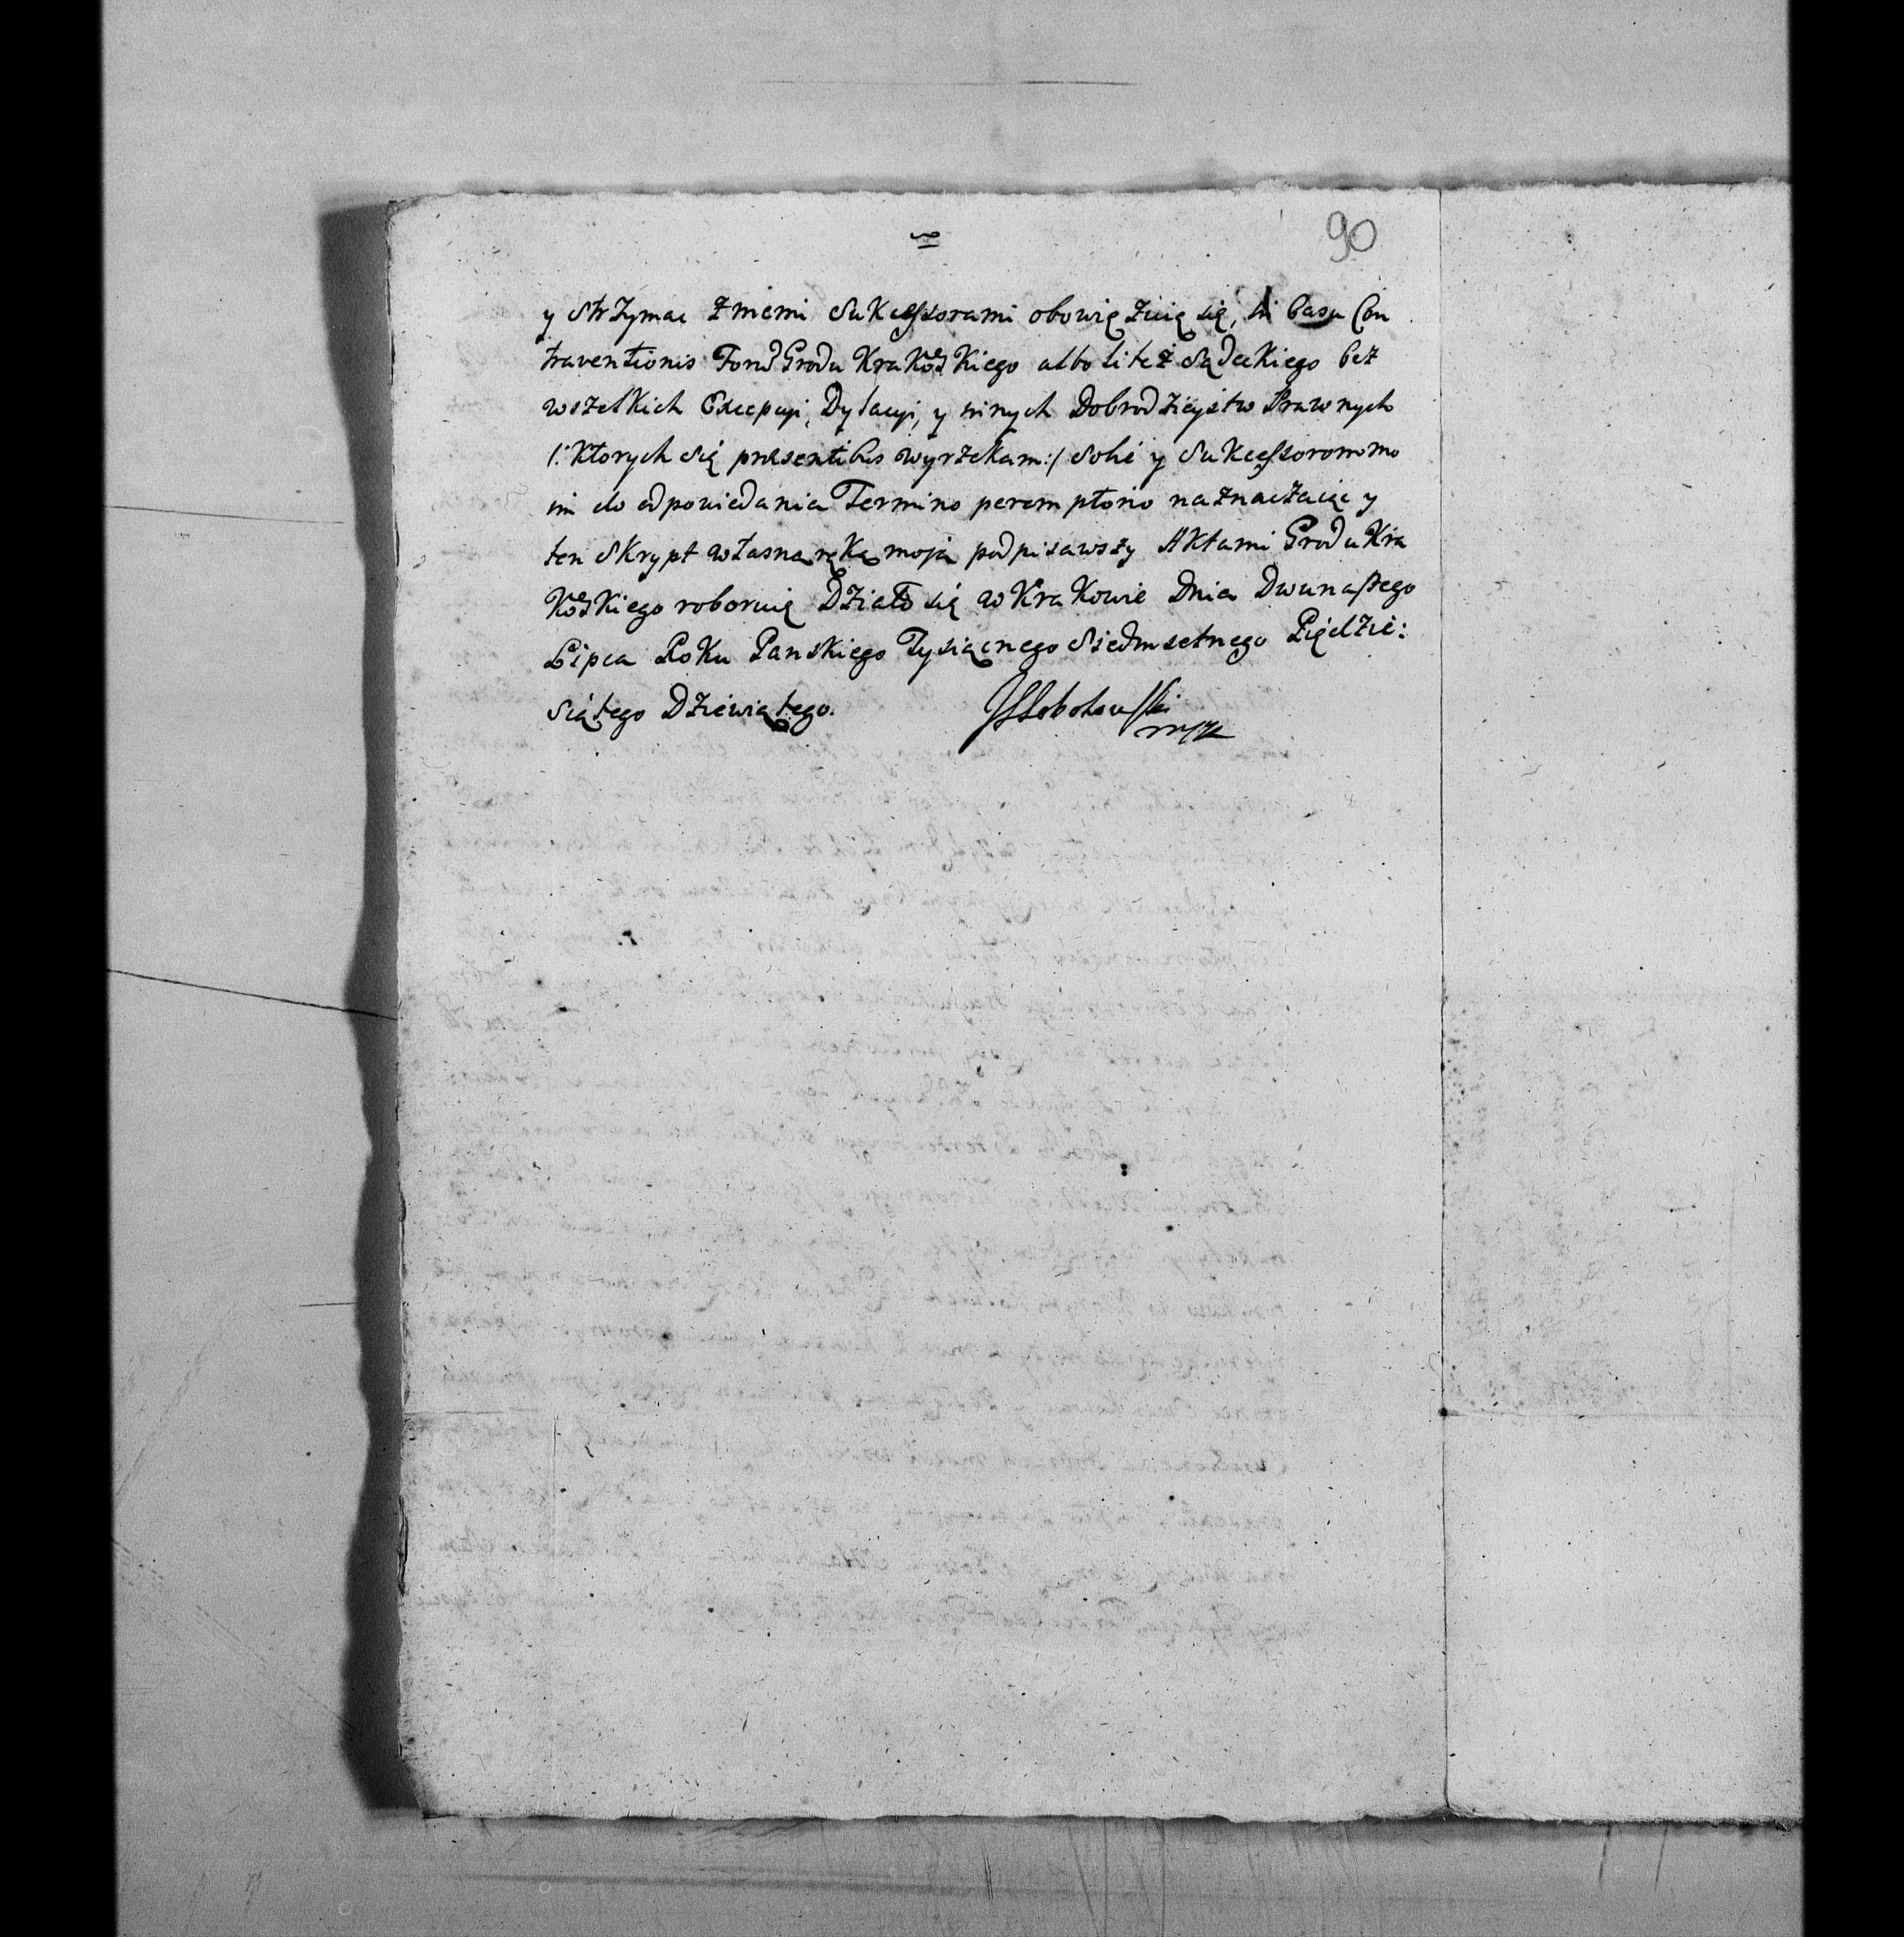 90
y strzymac z memi Sukcessorami obowięzuię się, in Casu Con
traventionis Forũ Grodu Krakoskiego albo li też Sądeckiego bez
wszelkich Excepcyi, Dylacyi, y innych Dobrodzieystw Prawnych
/: Ktorych się præsentibus wyrzekam :/ sobie y Sukcessorom mo
im do odpowiedania Termino peremptorio naznaczaiąc y
ten Skrypt własną ręką moją podpisawszy Aktami Grodu Kra
koskiego roboruię Działo się w Krakowie Dnia Dwunastego
Lipca Roku Panskiego Tysiącnego Siedmsetnego Pięćdzie:
siątego Dziewiątego.
mpp